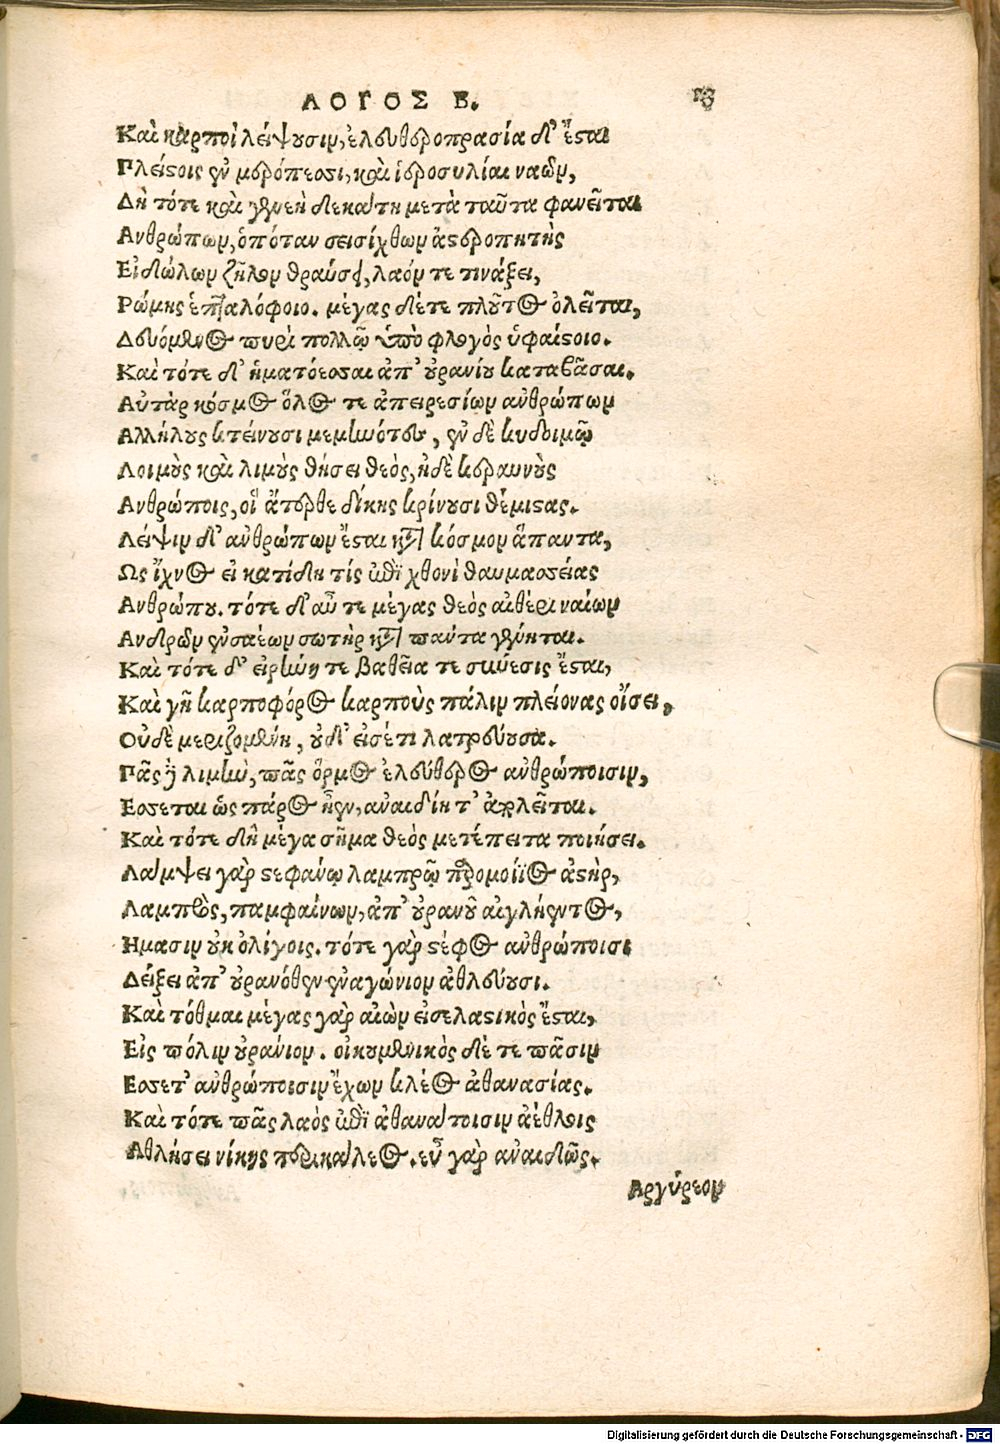 ΛΟΓΟΣ Β. 13
Καὶ καρποὶ λείψουσιν, ἐλευθεροπρασία δ' ἔσται
Πλείστοις ἐν μερόπεσσι, καὶ ἱεροσυλίαι ναῶν,
Δὴ τότε καὶ γενεὴ δεκάτη μετὰ ταῦτα φανεῖται
Ανθρώπων, ὁπόταν σεισίχθων ἀστεροπητὴς
Εἰδώλων ζῆλον θραύσει, λαόν τε τινάξει,
Ρώμης ἑπταλόφοιο. μέγας δέ τε πλοῦτος ὀλεῖται,
Δευόμενος πυρὶ πολλῷ ὑπὸ φλογὸς ὑφαίστοιο.
Καὶ τότε δ' ἡματόεσσαι ἀπ' οὐρανίου καταβᾶσαι.
Αὐτὰρ κόσμος ὅλος τε ἀπειρεσίων ἀνθρώπων
Αλλήλους κτείνουσι μεμηνότες, ἐν δὲ κυδοιμῷ
Λοιμοὺς καὶ λιμοὺς θήσει θεὸς, ἠδὲ κεραυνοὺς
Ανθρώποις, οἳ ἄτερθε δίκης κρίνουσι θέμιστας.
Λείψιν δ' ἀνθρώπων ἔσται κατὰ κόσμον ἅπαντα,
Ως ἴχνος εἰ κατίδῃ τίς ἐπὶ χθονὶ θαυμασσείας
Ανθρώπου. τότε δ' αὖ τε μέγας θεὸς αἰθέρι ναίων
Ανδρῶν εὐσεβέων σωτὴρ κατὰ πάντα γένηται.
Καὶ τότε δ' εἰρήνη τε βαθεῖα τε σύνεσις ἔσται,
Καὶ γῆ καρποφόρος καρποὺς πάλιν πλείονας οἴσει,
Οὐδὲ μεριζομένη, οὐδ' εἰσέτι λατρεύουσα.
Πᾶς δὲ λιμὴν, πᾶς ὅρμος ἐλεύθερος ἀνθρώποισιν,
Εσσεται ὡς πάρος ἦεν, ἀναιδίη τ' ἀπολεῖται.
Καὶ τότε δὴ μέγα σῆμα θεὸς μετέπειτα ποιήσει.
Λάμψει γὰρ στεφάνῳ λαμπρῷ παρομοίϊος ἀστὴρ,
Λαμπρὸς, παμφαίνων, ἀπ' οὐρανοῦ αἰγλήεντος,
Ημασιν οὐκ ὀλίγοις. τότε γὰρ στέφος ἀνθρώποισι
Δείξει ἀπ' οὐρανόθεν ἐναγώνιον ἀθλεύουσι.
Καὶ τόθμαι μέγας γὰρ αἰὼν εἰσελαστικὸς ἔσται,
Εἰς πόλιν οὐράνιον. οἰκουμενικὸς δέ τε πᾶσιν
Εσσετ' ἀνθρώποισιν ἔχων κλέος ἀθανασίας.
Καὶ τότε πᾶς λαὸς ἐπὶ ἀθανάτοισιν ἀέθλοις
Αθλήσει νίκης περικάλεος. οὐ γὰρ ἀναιδῶς.
Αργύρεον
Digitalisierung gefördert durch die Deutsche Forschungsgemeinschaft - DFG